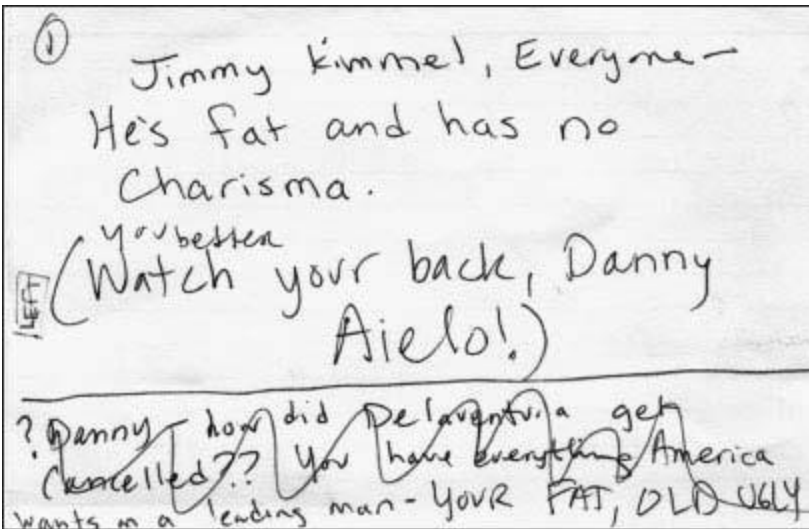 1
Jimmy Kimmel, Everyone-
He's fat and has no
Charisma.
you better
(Watch your back, Danny
LEFT
Aielo!.)
? Danny - how did Delaventura get
Cancelled?? You have everything America
wants in a leading man - YOUR FAT, OLD UGLY